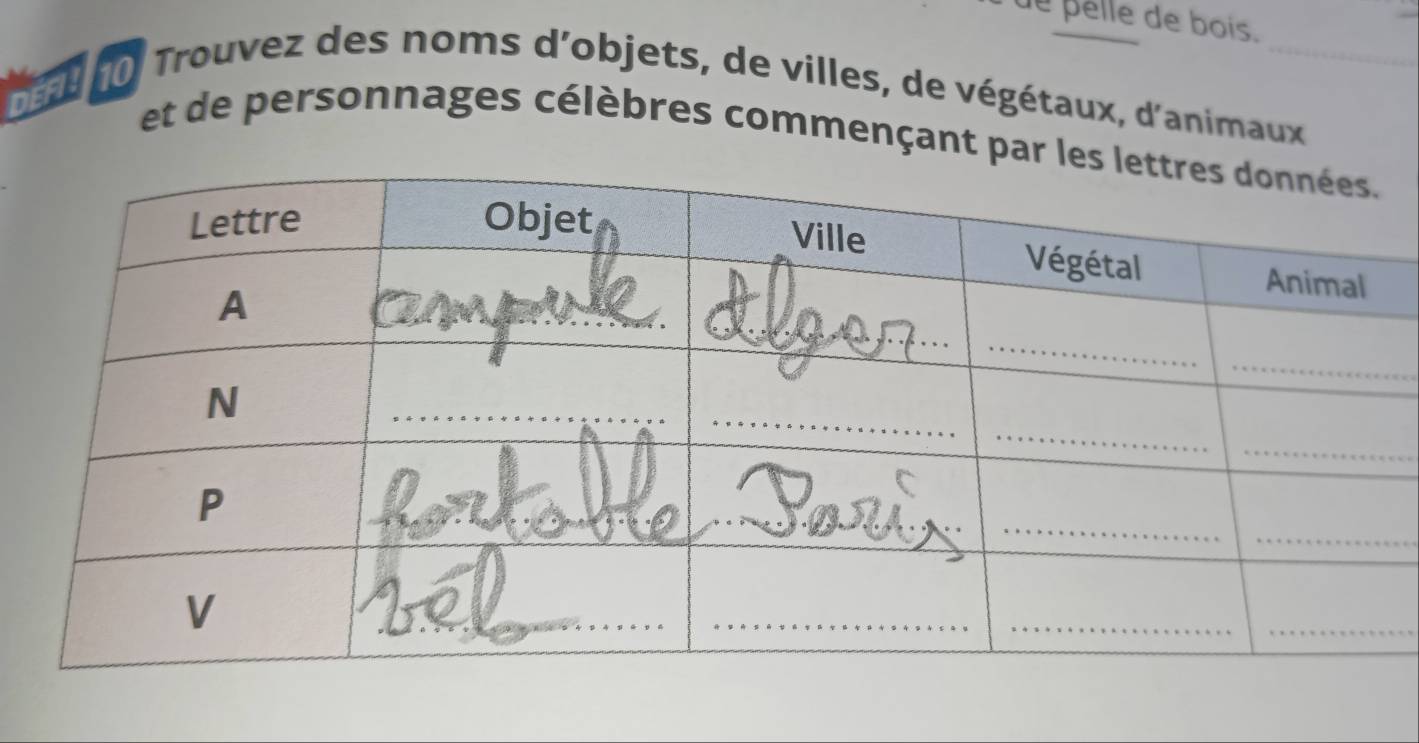 de pelle de bois.
DÉFI! 10 Trouvez des noms d'objets, de villes, de végétaux, d'animaux
et de personnages célèbres commençant par les lettres données.
Lettre Objet Ville Végétal Animal
A ampoule Alger
N
P Portable Paris
V vélo